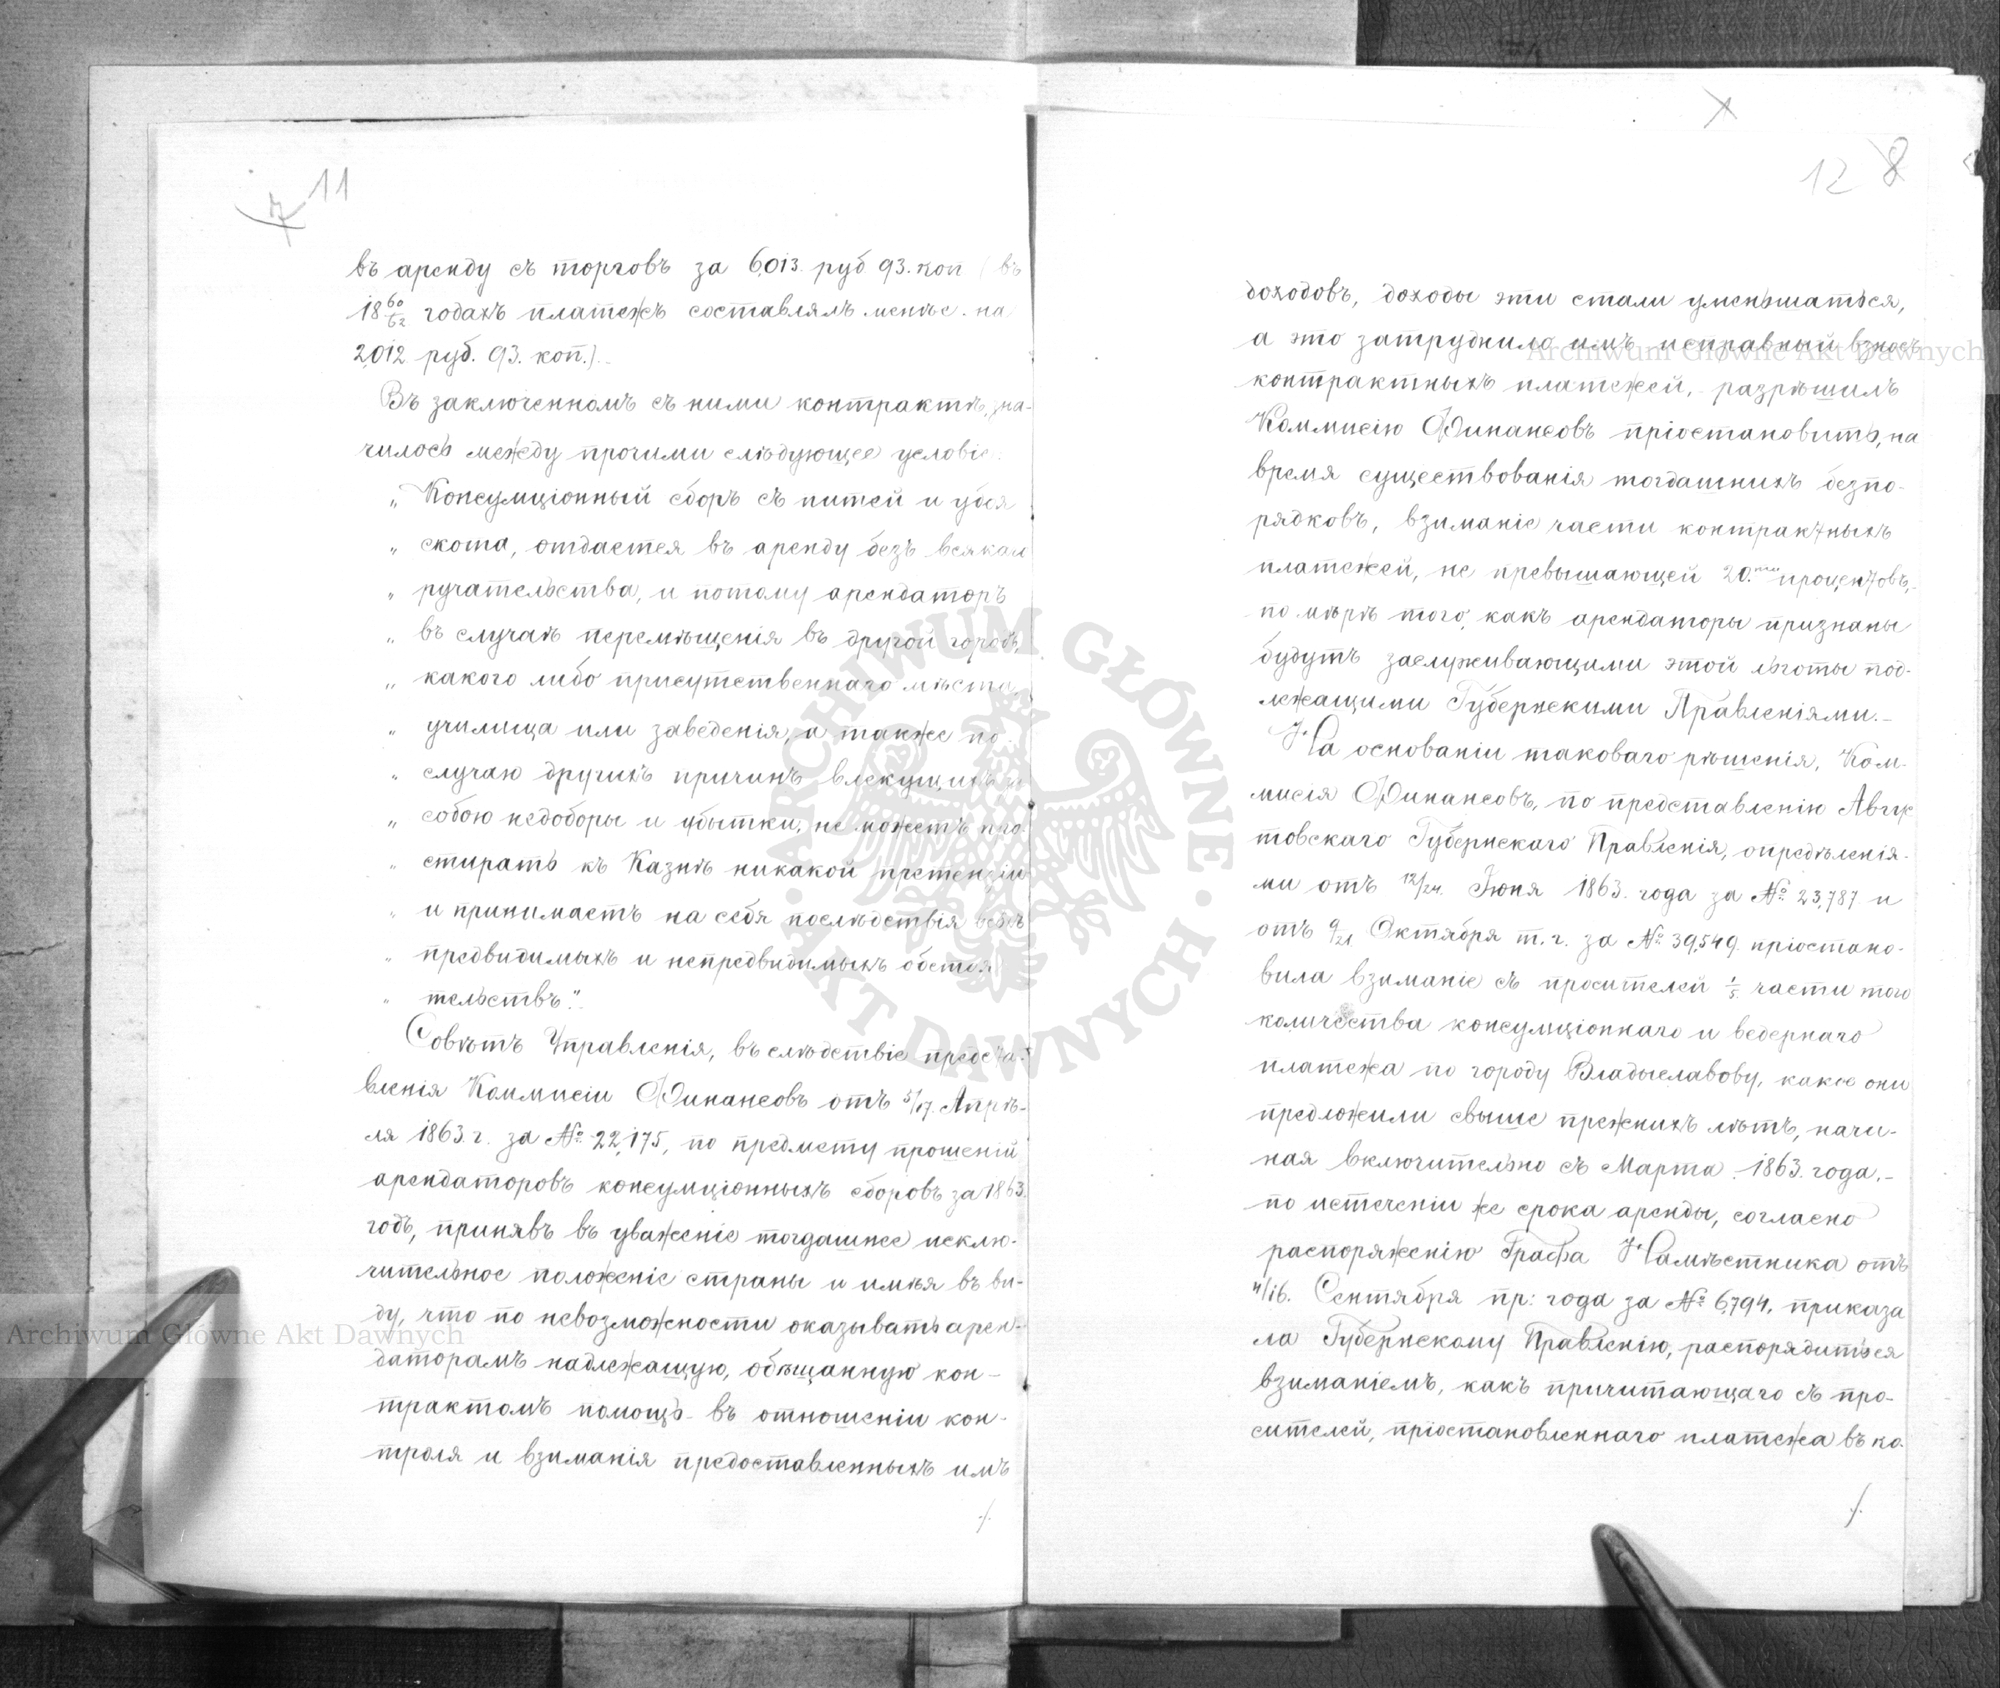 7 11
въ аренду съ торговъ за 6,013. руб 93. коп (въ
18 60/62 годахъ платежъ составлялъ менѣе на
2,012 руб. 93. коп.).
Въ заключенномъ съ ними контрактѣ, зна-
чилось между прочими слѣдующее условіе:
„ Консумціонный сборъ съ питей и убоя
„ скота, отдается въ аренду безъ всякаго
„ ручательства, и потому арендаторъ
„ въ случаѣ перемѣщенія въ другой городъ,
„ какого либо присутственнаго мѣста,
„ училища или заведенія, а также по
„ случаю другихъ причинъ влекущихъ за
„ собою недоборы и убытки, не можетъ про-
„ стирать къ Казнѣ никакой претензіи
„ и принимаетъ на себя послѣдствія всѣхъ
„ предвидимыхъ и непредвидимыхъ обстоя-
„ тельствъ."
Совѣтъ Управленія, въ слѣдствіе предста-
вленія Коммисіи Финансовъ отъ 5/17. Апрѣ-
ля 1863. г. за № 22,175, по предмету прошеній
арендаторовъ консумціонныхъ сборовъ за 1863.
годъ, принявъ въ уваженіе тогдашнее исклю-
чительное положеніе страны и имѣя въ ви-
ду, что по невозможности оказывать арен-
даторамъ надлежащую, обѣщанную кон-
трактомъ помощь въ отношеніи кон-
троля и взиманія предоставленныхъ имъ
./.
12 8
доходовъ, доходы эти стали уменьшаться,
а это затруднило имъ исправный взносъ
контрактныхъ платежей, - разрѣшилъ
Коммисію Финансовъ пріостановить, на
время существованія тогдашнихъ безпо-
рядковъ, взиманіе части контрактныхъ
платежей, не превышающей 20.ти процентовъ,-
по мѣрѣ того, какъ арендаторы признаны
будутъ заслуживающими этой льготы под-
лежащими Губернскими Правленіями.-
На основаніи таковаго рѣшенія, Ком-
мисія Финансовъ, по представленію Авгус
товскаго Губернскаго Правленія, опредѣленія-
ми отъ 12/24. Іюня 1863. года за № 23,787 и
отъ 9/21 Октября т. г. за № 39,549. пріостано-
вила взиманіе съ просителей 1/5. части того
количества консумціоннаго и ведернаго
платежа по городу Владыславову, какое они
предложили свыше прежнихъ лѣтъ, начи-
ная включительно съ Марта 1863. года.-
по истеченіи же срока аренды, согласно
распоряженію Графа Намѣстника отъ
4/16. Сентября пр: года за № 6,794, приказа
ла Губернскому Правленію, распорядиться
взиманіемъ, какъ причитающаго съ про-
сителей, пріостановленнаго платежа въ ко-
./.
Archiwum Główne Akt Dawnych
Archiwum Główne Akt Dawnych
ARCHIWUM GŁÓWNE · AKT DAWNYCH ·